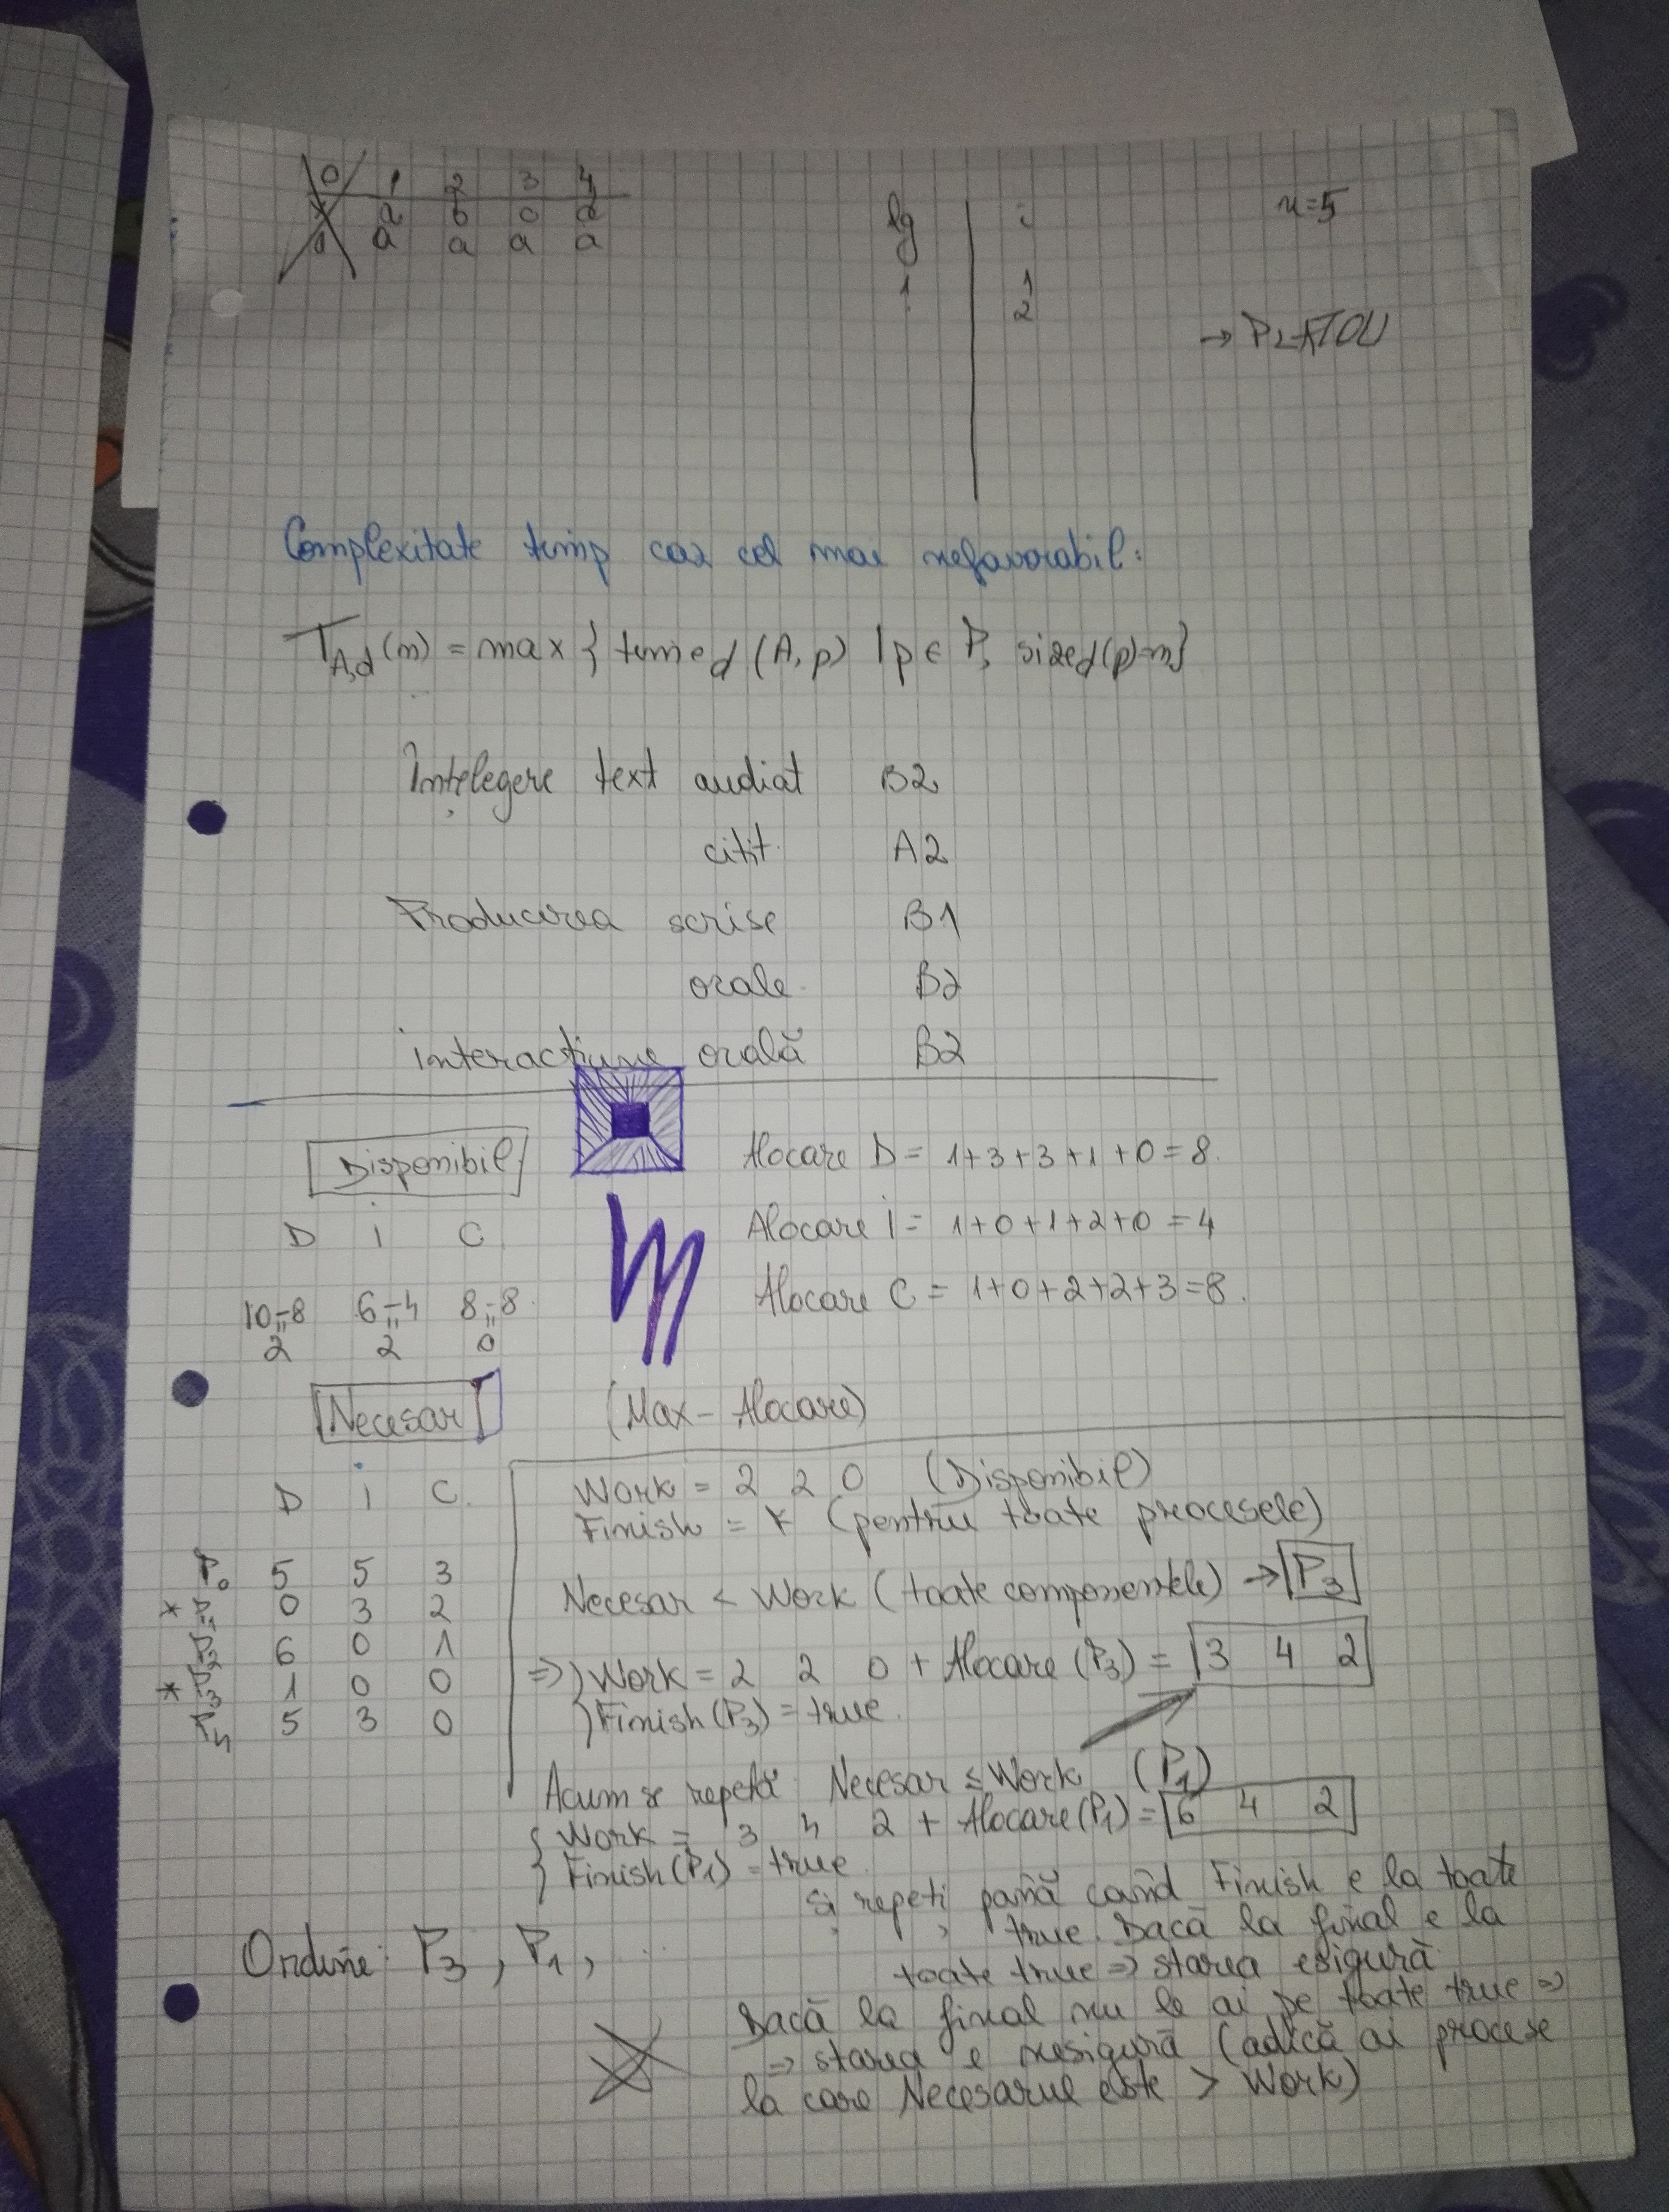 0 1 2 3 4
2 0 0 2
a a a a
lg i n=5
1 1
2
→ PLATOU
Complexitate timp caz cel mai nefavorabil:
T A,d (n) = max { timed (A, p) | p ∈ P, sized(p)=n}
Înțelegere text audiat B2
citit A2
Producerea scrise B1
orale B2
interacțiune orală B2
Disponibil
D i C
10-8 6-4 8-8
= = =
2 2 0
Alocare D = 1+3+3+1+0=8.
Alocare i = 1+0+1+2+0=4
Alocare C = 1+0+2+2+3=8.
Necesar (Max - Alocare)
D i C.
P0 5 5 3
* P1 0 3 2
P2 6 0 1
* P3 1 0 0
P4 5 3 0
Work = 2 2 0 (Disponibil)
Finish = F (pentru toate procesele)
Necesar < Work (toate componentele) → P3
=> Work = 2 2 0 + Alocare (P3) = 3 4 2
Finish (P3) = true.
Acum se repetă Necesar ≤ Work (P1)
Work = 3 4 2 + Alocare(P1) = 6 4 2
Finish (P1) = true
și repeți până când Finish e la toate
true. Dacă la final e la
toate true => starea e sigură
Ordine: P3, P1, ...
Dacă la final nu le ai pe toate true =>
=> starea e nesigură (adică ai procese
la care Necesarul este > Work)